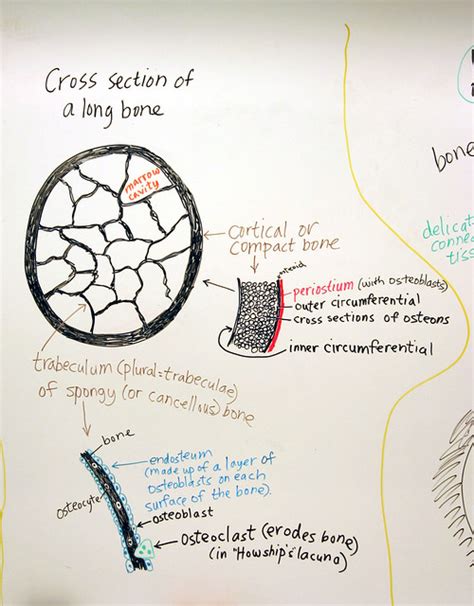 Cross section of
a long bone
marrow
cavity
cortical or
compact bone
osteoid
periostium (with osteoblasts)
outer circumferential
cross sections of osteons
inner circumferential
trabeculum (plural=trabeculae)
of spongy (or cancellous) bone
bone
endosteum
(made up of a layer of
osteoblasts on each
surface of the bone).
osteocyte
osteoblast
osteoclast (erodes bone)
(in "Howship's lacuna)
bone
delicat
conne
tiss